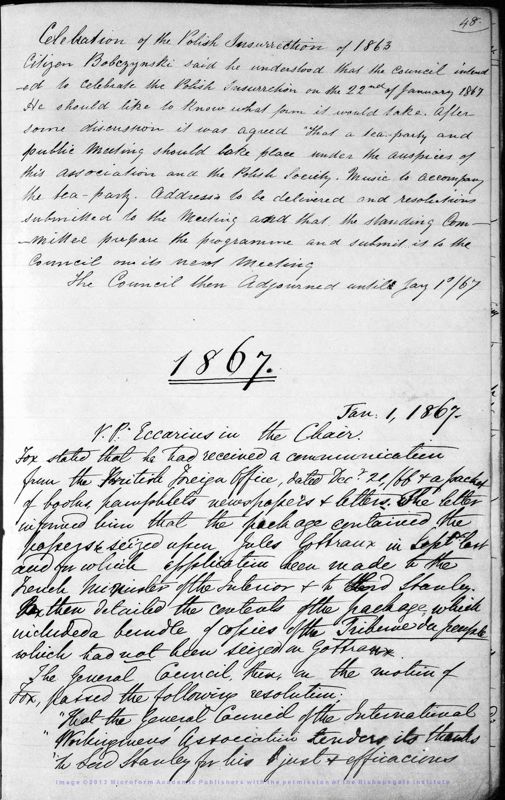 48.
Celebration of the Polish Insurrection of 1863
Citizen Bobczynski said he understood that the council intend
-ed to celebrate the Polish Insurrection on the 22nd of January 1867
He should like to know what form it would take. After
some discussion it was agreed "that a tea-party and
public meeting should take place under the auspices of
this association and the Polish Society. Music to accompany
the tea-party. Address to be delivered and resolutions
submitted to the meeting and that the standing Com-
-mittee prepare the programme and submit it to the
Council on its next meeting
The Council then Adjourned until Jay 1st/67
1867.
Jan. 1, 1867.
V.P. Eccarius in the Chair.
Fox stated that he had received a communication
from the British Foreign Office, dated Decr 21,/66 & a packet
of books, pamphlets newspapers & letters. The letter
informed him that the package contained the
papers seized upon Jules Gottraux in Sept. last
and for which application been made to the
French Minister of the Interior & to Lord Stanley.
Fox then detailed the contents of the package, which
included a bundle of copies of the Tribune du peuple
which had not been seized on Gottraux.
The General Council, then, on the motion of
Fox, passed the following resolution:
"That the General Council of the International
"Workingmens' Association tenders its thanks
"to Lord Stanley for his just & efficacious
Image ©2012 Microform Academic Publishers with the permission of the Bishopsgate Institute